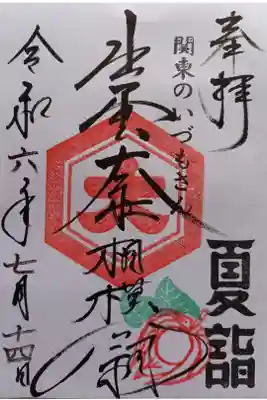 奉拝
夏詣
関東のいづもさん
出雲大社
相模分祠
令和六年七月十四日